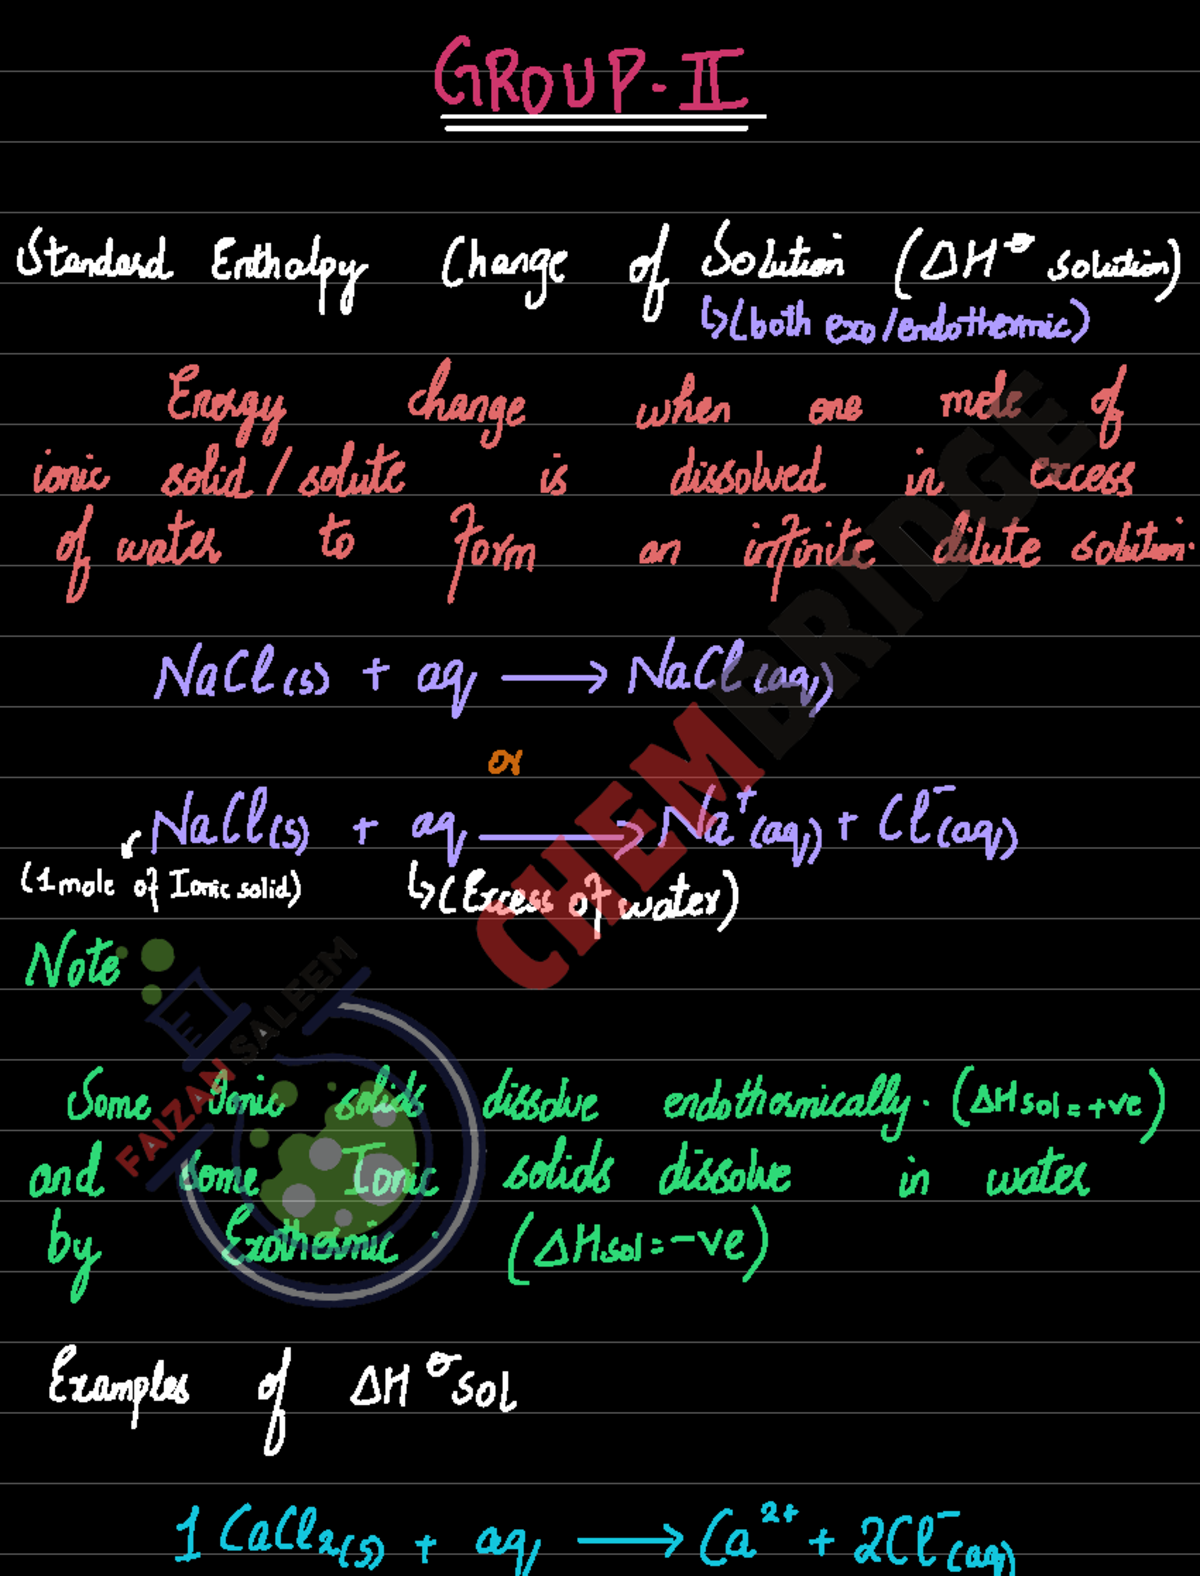 GROUP-II
Standard Enthalpy Change of Solution (ΔH⦵ solution)
↳(both exo/endothermic)
Energy change when one mole of
ionic solid/solute is dissolved in excess
of water to form an infinite dilute solution.
NaCl(s) + aq ⟶ NaCl(aq)
or
NaCl(s) + aq ⟶ Na⁺(aq) + Cl⁻(aq)
(1 mole of Ionic solid) ↳(Excess of water)
Note
Some Ionic solids dissolve endothermically. (ΔHsol = +ve)
and some Ionic solids dissolve in water
by Exothermic. (ΔHsol = -ve)
Examples of ΔH⦵sol
1 CaCl₂(s) + aq ⟶ Ca²⁺ + 2Cl⁻(aq)
CHEMBRIDGE
FAIZAN SALEEM